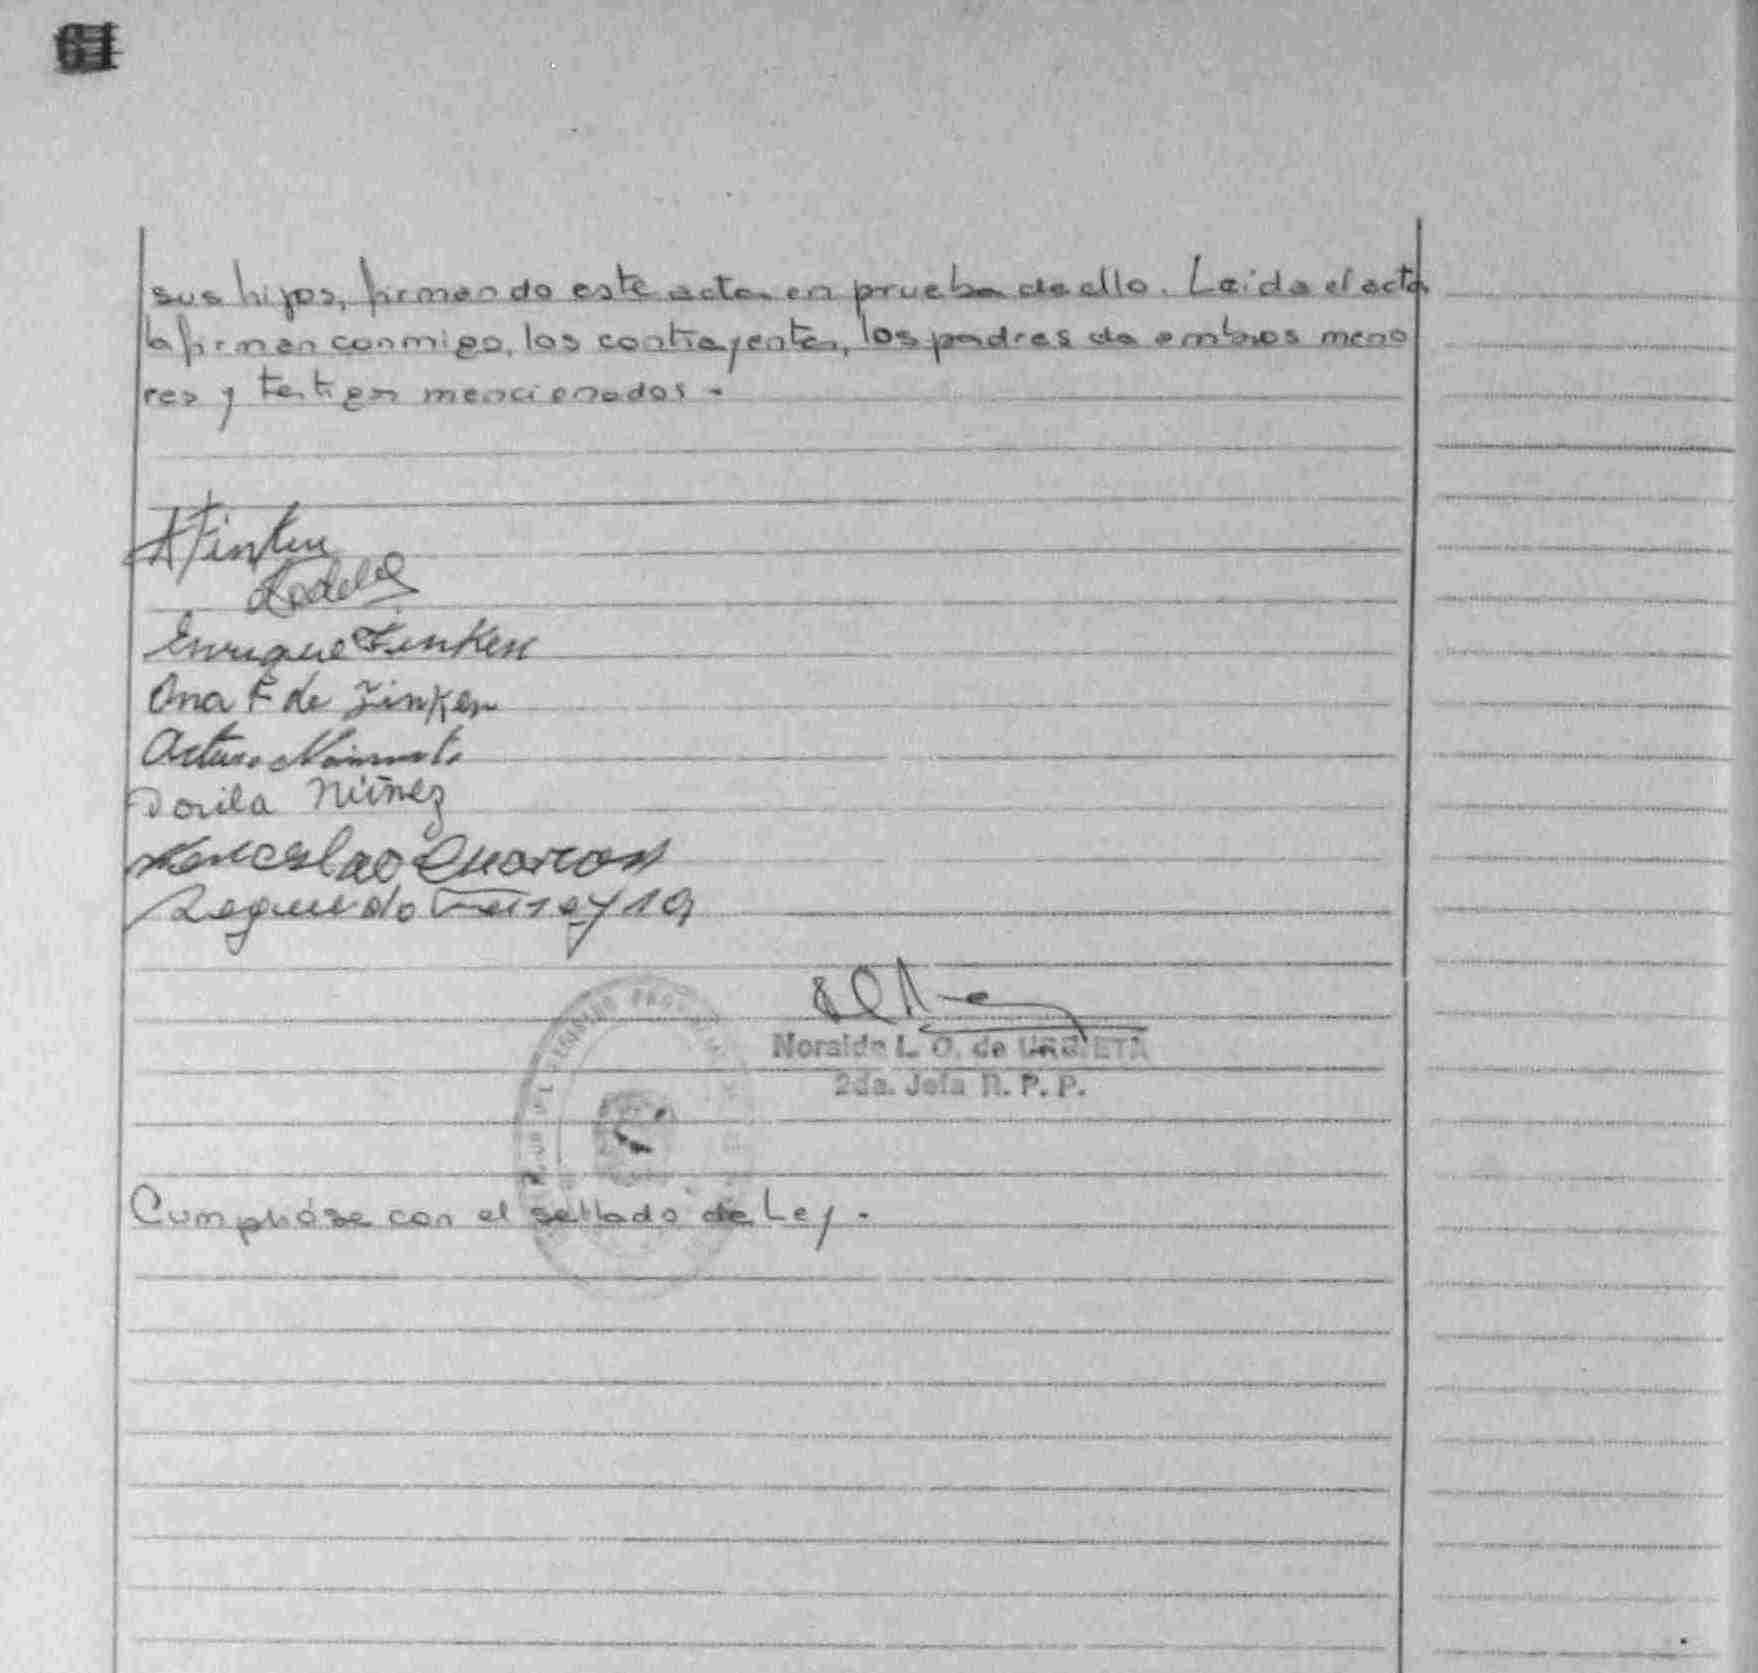 61
sus hijos, firmando este acta en prueba de ello. Leida el acta
la firman conmigo, los contrayentes, los padres de ambos meno
res y testigos mencionados.
A Finken
Enrique Finken
Ana F de Finken
Arturo
Dorila Núñez
Wenceslao
Segundo
Noraida L. O. de URBIETA
2da. Jefa R. P. P.
Cumplióse con el sellado de Ley.